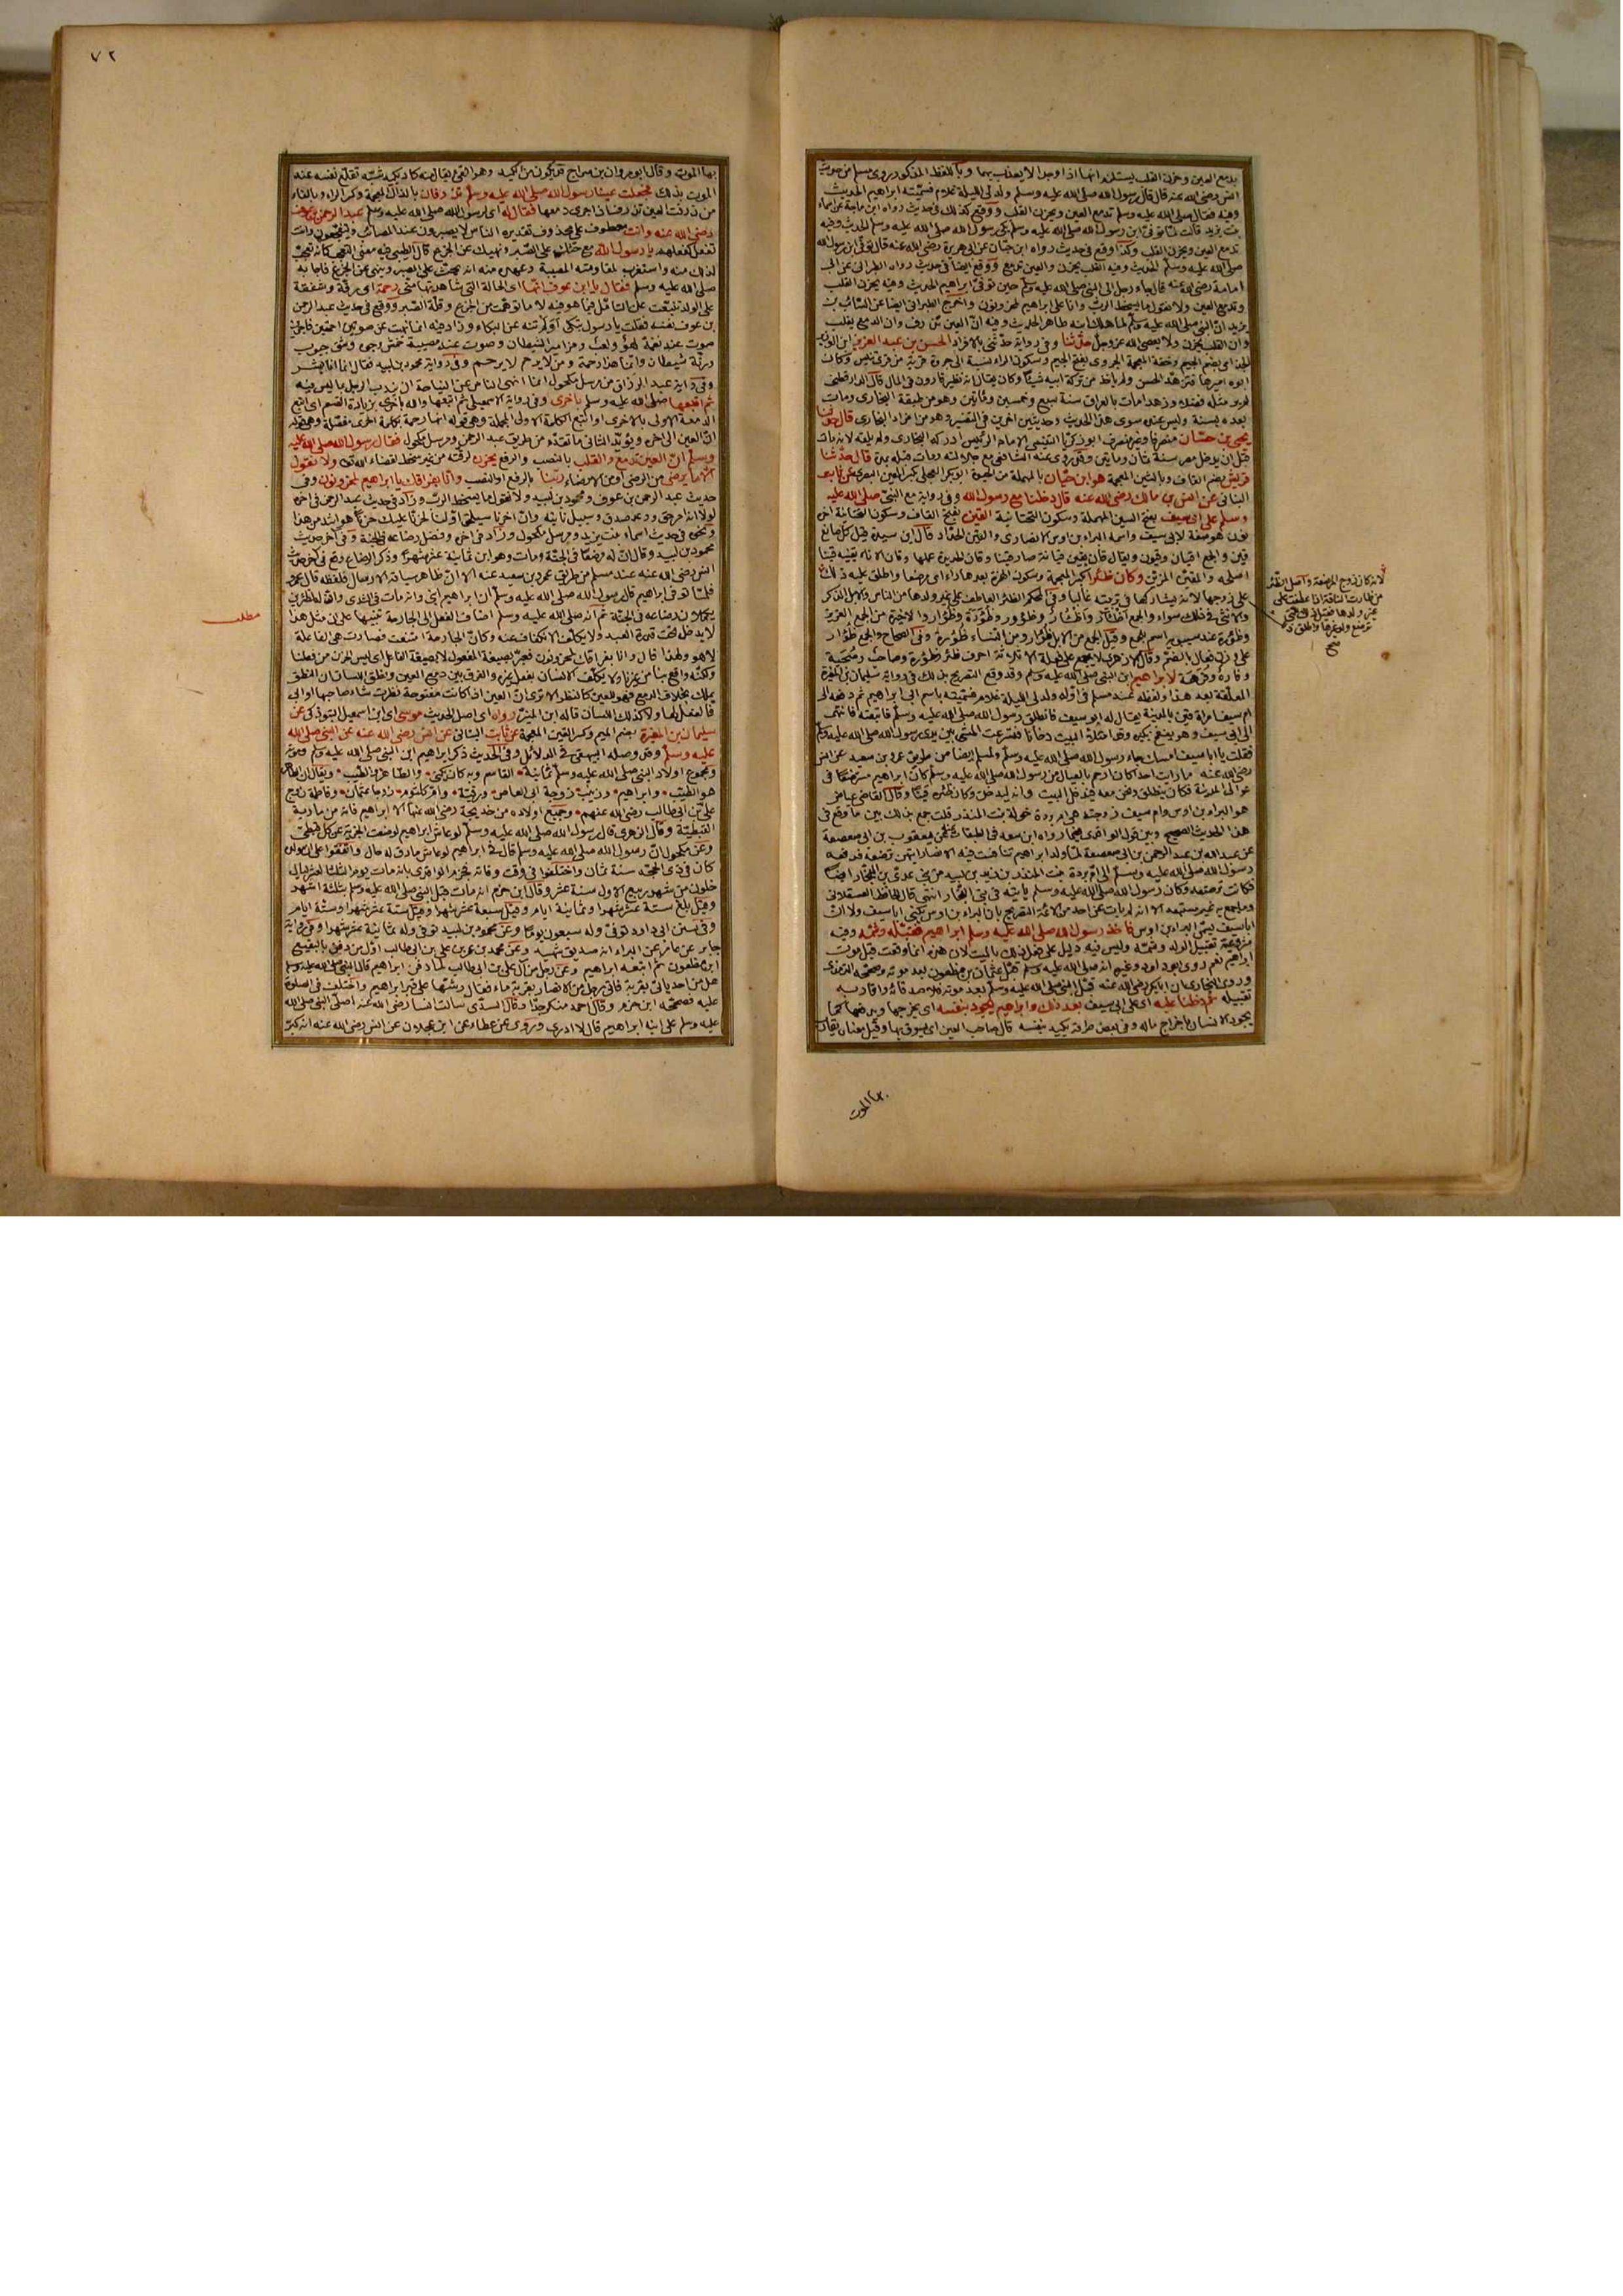 بدمع العين وحزن القلب يستلزم انهما اذا وجدا لا يعذب بهما وبأللفظ المذكور روى مسلم من حديث
انس رضى الله عنه قال قال رسول الله صلى الله عليه وسلم ولد لى الليلة غلام فسميته ابراهيم الحديث
وفيه فقال صلى الله عليه وسلم تدمع العين ويحزن القلب ووقع كذلك فى حديث رواه ابن ماجة عن اسماء
بنت يزيد قالت لما توفى ابن رسول الله صلى الله عليه وسلم بكى رسول الله صلى الله عليه وسلم الحديث وفيه
تدمع العين ويحزن القلب وكذا وقع فى حديث رواه ابن حبان عن ابى هريرة رضى الله عنه قال توفى ابن رسول الله
صلى الله عليه وسلم الحديث وفيه القلب يحزن والعين تدمع ووقع ايضا فى حديث رواه الطبرانى عن ابى
امامة رضى الله عنه قال جاء رجل الى النبى صلى الله عليه وسلم حين توفى ابراهيم الحديث وفيه يحزن القلب
وتدمع العين ولا نقول ما يسخط الرب وانا على ابراهيم لمحزونون واخرج الطبرانى ايضا عن السائب بن
يزيد ان النبى صلى الله عليه وسلم لما هلك ابنه طاهر الحديث وفيه ان العين تذرف وان الدمع يغلب
وان القلب يحزن ولا يعصى الله عز وجل حدثنا وفى رواية حدثنى بالافراد الحسن بن عبد العزيز ابن الوزير
الجذامى بضم الجيم وخفة المعجمة الجروى بفتح الجيم وسكون الراء نسبة الى جروة قرية من قرى تنيس وكان
ابوه اميرها فتزهد الحسن ولم ياخذ من تركة ابيه شيئا وكان يقال انه نظير قارون فى المال قال الدارقطنى
لم ير مثله فضلا وزهدا مات بالعراق سنة سبع وخمسين ومائتين وهو من طبقة البخارى ومات
بعده بسنة وليس عنده سوى هذا الحديث وحديثين اخرين فى التفسير وهو من افراد البخارى قال حدثنا
يحيى بن حسان منصرفا وغير منصرف ابو زكريا التنيسى الامام الرئيس ادركه البخارى ولم يلقه لانه مات
قبل ان يدخل مصر سنة ثمان ومايتين وقد روى عنه الشافعى مع جلالته ومات قبله بمدة قال حدثنا
قريش بضم القاف وبالشين المعجمة هو ابن حيان بالمهملة من الحيوة ابو بكر العجلى بكسر العين البصرى عن ثابت
البنانى عن انس بن مالك رضى الله عنه قال دخلنا مع رسول الله وفى رواية مع النبى صلى الله عليه
وسلم على ابى سيف بفتح السين المهملة وسكون التحتانية القين بفتح القاف وسكون التحتانية اخره
نون هو صفة لابى سيف واسمه البراء بن اوس الانصارى والقين الحداد قال ابن سيدة قيل كل صانع
قين والجمع اقيان وقيون ويقال قان يقين قيانة صار قينا وقان الحديدة عملها وقان الاناء يقينه قينا
اصلحه والمقين المزين وكان ظئرا بكسر المعجمة وسكون الهمزة بعدها راء اى مرضعا واطلق عليه ذلك
على زوجها لانه يشاركها فى تربيته غالبا وفى المحكم الظئر العاطف على غير ولدها من الناس والابل الذكر
والانثى فى ذلك سواء والجمع اظؤر واظئار وظؤور وظؤرة وظؤار والاخيرة من الجمع العزيز
وظؤرة عند سيبويه اسم للجمع وقيل الجمع من الابل ظؤار ومن النساء ظؤرة وفى الصحاح والجمع ظؤار
على وزن فعال بالضم وقال الازهرى لا يجمع على فعلة الا ثلاثة احرف ظئر وظؤرة وصاحب وصحبة
وفاره وفرهة لابراهيم ابن النبى صلى الله عليه وسلم وقد وقع التصريح بذلك فى رواية سليمان بن المغيرة
المعلقة بعد هذا ولفظه عند مسلم فى اوله ولد لى الليلة غلام فسميته باسم ابى ابراهيم ثم دفعه الى
ام سيف امراة قين بالمدينة يقال له ابو سيف فانطلق رسول الله صلى الله عليه وسلم فاتبعته فانتهى
الى ابى سيف وهو ينفخ بكيره وقد امتلأ البيت دخانا فاسرعت المشى بين يدى رسول الله صلى الله عليه وسلم
فقلت يا ابا سيف امسك جاء رسول الله صلى الله عليه وسلم ولمسلم ايضا من طريق عمرو بن سعيد عن انس
رضى الله عنه ما رايت احدا كان ارحم بالعيال من رسول الله صلى الله عليه وسلم كان ابراهيم مسترضعا فى
عوالى المدينة فكان ينطلق ونحن معه فيدخل البيت وانه ليدخن وكان ظئره قينا وقال القاضى عياض
هو البراء بن اوس وام سيف زوجته هى ام بردة خولة بنت المنذر قلت جمع بذلك بين ما وقع فى
هذا الحديث الصحيح وبين قول الواقدى فيما رواه ابن سعد فى الطبقات عنه عن يعقوب بن ابى صعصعة
عن عبد الله بن عبد الرحمن بن ابى صعصعة لما ولد ابراهيم تنافست فيه الانصار ايتهن ترضعه فدفعه
رسول الله صلى الله عليه وسلم الى ام بردة بنت المنذر بن زيد بن لبيد من بنى عدى بن النجار ايضا
فكانت ترضعه وكان رسول الله صلى الله عليه وسلم ياتيه فى بنى النجار انتهى قال الحافظ العسقلانى
وما جمع به غير مستبعد الا انه لم يات عن احد من الائمة التصريح بان البراء بن اوس يكنى ابا سيف ولا ان
ابا سيف يسمى البراء بن اوس فاخذ رسول الله صلى الله عليه وسلم ابراهيم فقبله وشمه وفيه
مشروعية تقبيل الولد وشمه وليس فيه دليل على فعل ذلك بالميت لان هذه انما وقعت قبل موت
ابراهيم نعم روى ابو داود وغيره انه صلى الله عليه وسلم قبل عثمان بن مظعون بعد موته وصححه الترمذى
وروى البخارى ان ابا بكر رضى الله عنه قبل النبى صلى الله عليه وسلم بعد موته فلاصدقائه واقاربه
تقبيله ثم دخلنا عليه اى على ابى سيف بعد ذلك وابراهيم يجود بنفسه اى يخرجها ويدفعها كما
يجود الانسان باخراج ماله وفى بعض طرقه يكيد بنفسه قال صاحب العين اى يسوق بها وقيل معناه يقارب
بها الموت
لانه كان زوج المرضعة واصل الظئر
من ظأرت الناقة اذا عطفت على
غير ولدها فقيل ذلك للتى
ترضع ولد غيرها واطلق ذلك
صح
٧٢
بها الموت وقال ابو مروان بن سراج قد يكون من الكيد وهو القئ يقال منه كاد يكيد شبه تقلع نفسه عند
الموت بذلك فجعلت عينا رسول الله صلى الله عليه وسلم تذرفان بالذال المعجمة وكسر الراء وبالفاء
من ذرفت العين تذرف اذا جرى دمعها فقال له اى لرسول الله صلى الله عليه وسلم عبد الرحمن بن عوف
رضى الله عنه وانت معطوف على محذوف تقديره الناس لا يصبرون عند المصائب ويتفجعون وانت
تفعل كفعلهم يا رسول الله مع حثك على الصبر ونهيك عن الجزع قال الطيبى فيه معنى التعجب كانه تعجب
لذلك منه واستغرب لمقاومته المصيبة وعهده منه انه يحث على الصبر وينهى عن الجزع فاجابه
صلى الله عليه وسلم فقال يا ابن عوف انها اى الحالة التى شاهدتها منى رحمة اى رقة وشفقة
على الولد تنبعث عن التامل فيما هو فيه لا ما توهمت من الجزع وقلة الصبر ووقع فى حديث عبد الرحمن
بن عوف نفسه فقلت يا رسول تبكى اولم تنه عن البكاء وزاد فيه انما نهيت عن صوتين احمقين فاجرين
صوت عند نغمة لهو ولعب ومزامير الشيطان وصوت عند مصيبة خمش وجوه وشق جيوب
ورنة شيطان وانما هذا رحمة ومن لا يرحم لا يرحم وفى رواية محمود بن لبيد فقال انما انا بشر
وفى رواية عبد الرزاق من مرسل مكحول انما انهى الناس عن النياحة ان يندب الرجل بما ليس فيه
ثم اتبعها صلى الله عليه وسلم باخرى وفى رواية الاسمعيلى ثم اتبعها والله باخرى بزيادة القسم اى اتبع
الدمعة الاولى بالاخرى او اتبع الكلمة الاولى المجملة وهى قوله انها رحمة بكلمة اخرى مفصلة وهى قوله
ان العين الى اخره ويؤيد الثانى ما تقدم من طريق عبد الرحمن ومرسل مكحول فقال رسول الله صلى الله عليه
وسلم ان العين تدمع والقلب بالنصب والرفع يحزن لرقته من غير سخط لقضاء الله تعالى ولا نقول
الا ما يرضى من الرضى او من الارضاء ربنا بالرفع او النصب وانا بفراقك يا ابراهيم لمحزونون وفى
حديث عبد الرحمن بن عوف ومحمود بن لبيد ولا نقول ما يسخط الرب وزاد فى حديث عبد الرحمن فى اخره
لولا انه امر حق ووعد صدق وسبيل ناتيه وان اخرنا سيلحق اولنا لحزنا عليك حزنا هو اشد من هذا
ونحوه فى حديث اسماء بنت يزيد ومرسل مكحول وزاد فى اخره وفضل رضاعه فى الجنة وفى آخر حديث
محمود بن لبيد وقال ان له مرضعا فى الجنة ومات وهو ابن ثمانية عشر شهرا وذكر الرضاع وقع فى آخر حديث
انس رضى الله عنه عند مسلم من طريق عمرو بن سعيد عنه الا ان ظاهر سياقه الارسال فلفظه قال عمرو
فلما توفى ابراهيم قال رسول الله صلى الله عليه وسلم ان ابراهيم ابنى وانه مات فى الثدى وان له لظئرين
يكملان رضاعه فى الجنة ثم انه صلى الله عليه وسلم اضاف الفعل الى الجارحة تنبيها على ان مثل هذا
لا يدخل تحت قدرة العبد ولا يكلف الانكفاف عنه وكان الجارحة امتنعت فصارت هى الفاعلة
لا هو ولهذا قال وانا بفراقك لمحزونون فعبر بصيغة المفعول لا بصيغة الفاعل اى ليس الحزن من فعلنا
ولكنه واقع بنا من غيرنا ولا يكلف الانسان بفعل غيره والفرق بين دمع العين ونطق اللسان ان النطق
يملك بخلاف الدمع فهو للعين كالنظر الا ترى ان العين اذا كانت مفتوحة نظرت شاء صاحبها او ابى
فالفعل لها ولا كذلك اللسان قاله ابن المنير رواه اى اصل الحديث موسى اى ابن اسمعيل التبوذكى عن
سليمان بن المغيرة بضم الميم وكسر الغين المعجمة عن ثابت البنانى عن انس رضى الله عنه عن النبى صلى الله
عليه وسلم وقد وصله البيهقى فى الدلائل وفى الحديث ذكر ابراهيم ابن النبى صلى الله عليه وسلم وموته
ومجموع اولاد النبى صلى الله عليه وسلم ثمانية القاسم وبه كان يكنى والطاهر والطيب ويقال ان الطاهر
هو الطيب وابراهيم وزينب زوجة ابى العاص ورقية وام كلثوم زوجا عثمان وفاطمة زوج
على بن ابى طالب رضى الله عنهم وجميع اولاده من خديجة رضى الله عنها الا ابراهيم فانه من مارية
القبطية وقال الزهرى قال رسول الله صلى الله عليه وسلم لو عاش ابراهيم لوضعت الجزية عن كل قبطى
وعن مكحول ان رسول الله صلى الله عليه وسلم قال فى ابراهيم لو عاش ما رق له خال واتفقوا على ان مولده
كان فى ذى الحجة سنة ثمان واختلفوا فى وقت وفاته فجزم الواقدى بانه مات يوم الثلثا لعشر ليال
خلون من شهر ربيع الاول سنة عشر وقال ابن حزم انه مات قبل النبى صلى الله عليه وسلم بثلثة اشهر
وقيل بلغ ستة عشر شهرا وثمانية ايام وقيل سبعة عشر شهرا وقيل ستة عشر شهرا وستة ايام
وفى سنن ابى داود توفى وله سبعون يوما وعن محمود بن لبيد توفى وله ثمانية عشر شهرا وفى رواية
جابر عن عامر عن البراء انه صديق شهيد وعن محمد بن عمر بن على بن ابى طالب اول من دفن بالبقيع
ابن مظعون ثم اتبعه ابراهيم وعن رجل من آل على بن ابى طالب لما دفن ابراهيم قال النبى صلى الله عليه وسلم
هل من احد ياتى بقربة فاتى رجل من الانصار بقربة ماء فقال رشها على قبر ابراهيم واختلف فى الصلوة
عليه فصححه ابن حزم وقال احمد منكر جدا وقال السدى سالت انسا رضى الله عنه اصلى النبى صلى الله
عليه وسلم على ابنه ابراهيم قال لا ادرى وروى عن عطاء عن ابن عجلان عن انس رضى الله عنه انه كبر
مطلب